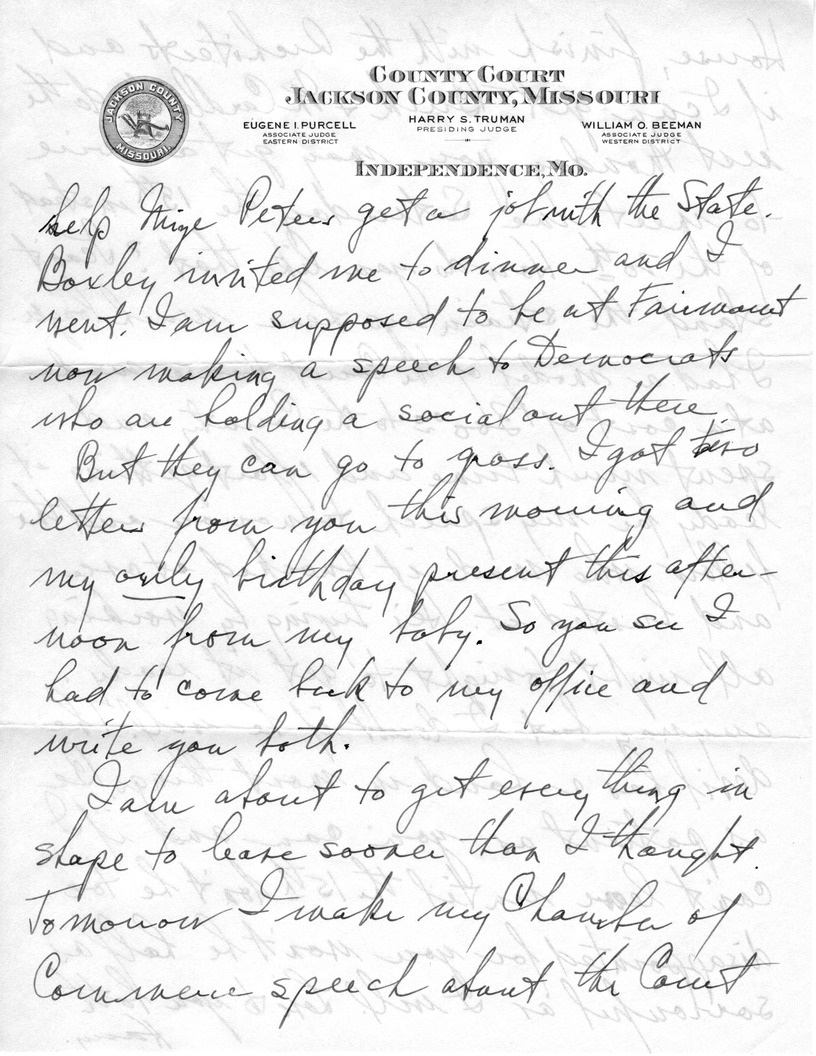 COUNTY COURT
JACKSON COUNTY, MISSOURI
JACKSON COUNTY
MISSOURI.
EUGENE I. PURCELL
ASSOCIATE JUDGE
EASTERN DISTRICT
HARRY S. TRUMAN
PRESIDING JUDGE
WILLIAM O. BEEMAN
ASSOCIATE JUDGE
WESTERN DISTRICT
INDEPENDENCE, MO.
help Mize Peters get a job with the State.
Boxley invited me to dinner and I
went. I am supposed to be at Fairmount
now making a speech to Democrats
who are holding a social out there.
But they can go to grass. I got two
letters from you this morning and
my only birthday present this after-
noon from my baby. So you see I
had to come back to my office and
write you both.
I am about to get everything in
shape to leave sooner than I thought.
Tomorrow I make my Chamber of
Commerce speech about the Court